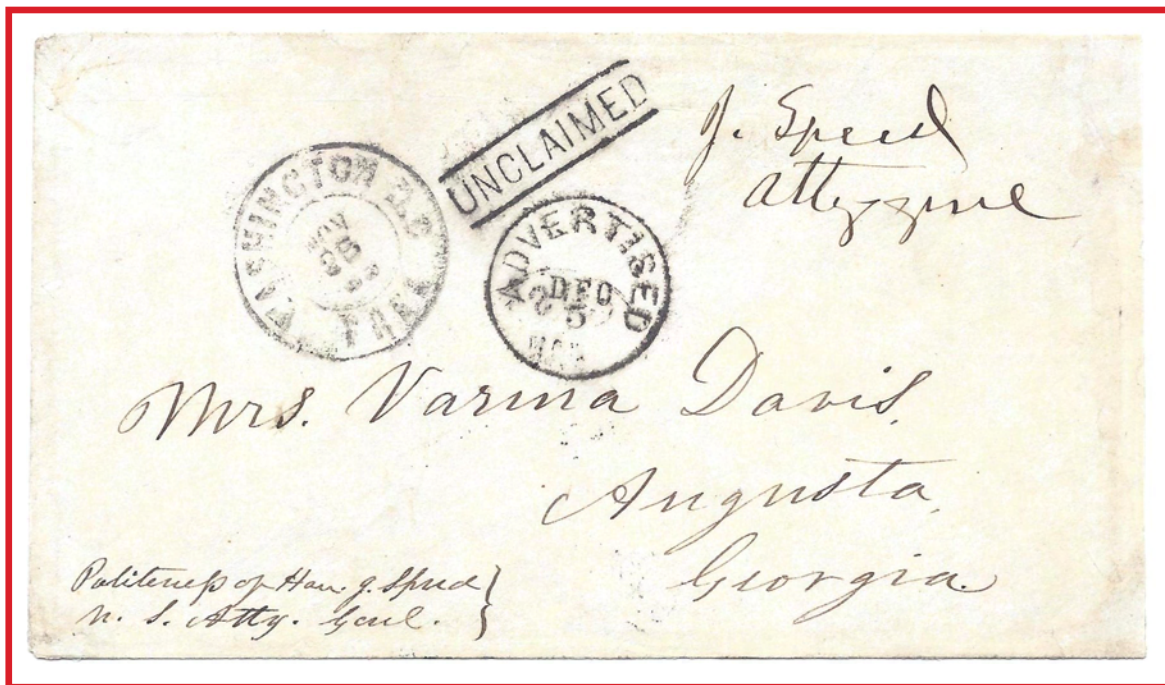 UNCLAIMED
J. Speed
Atty genl
WASHINGTON D.C.
NOV
FREE
ADVERTISED
DEC
25
Mrs. Varina Davis,
Augusta,
Georgia.
Politeness of Hon. J. Speed
U. S. Atty. Genl.